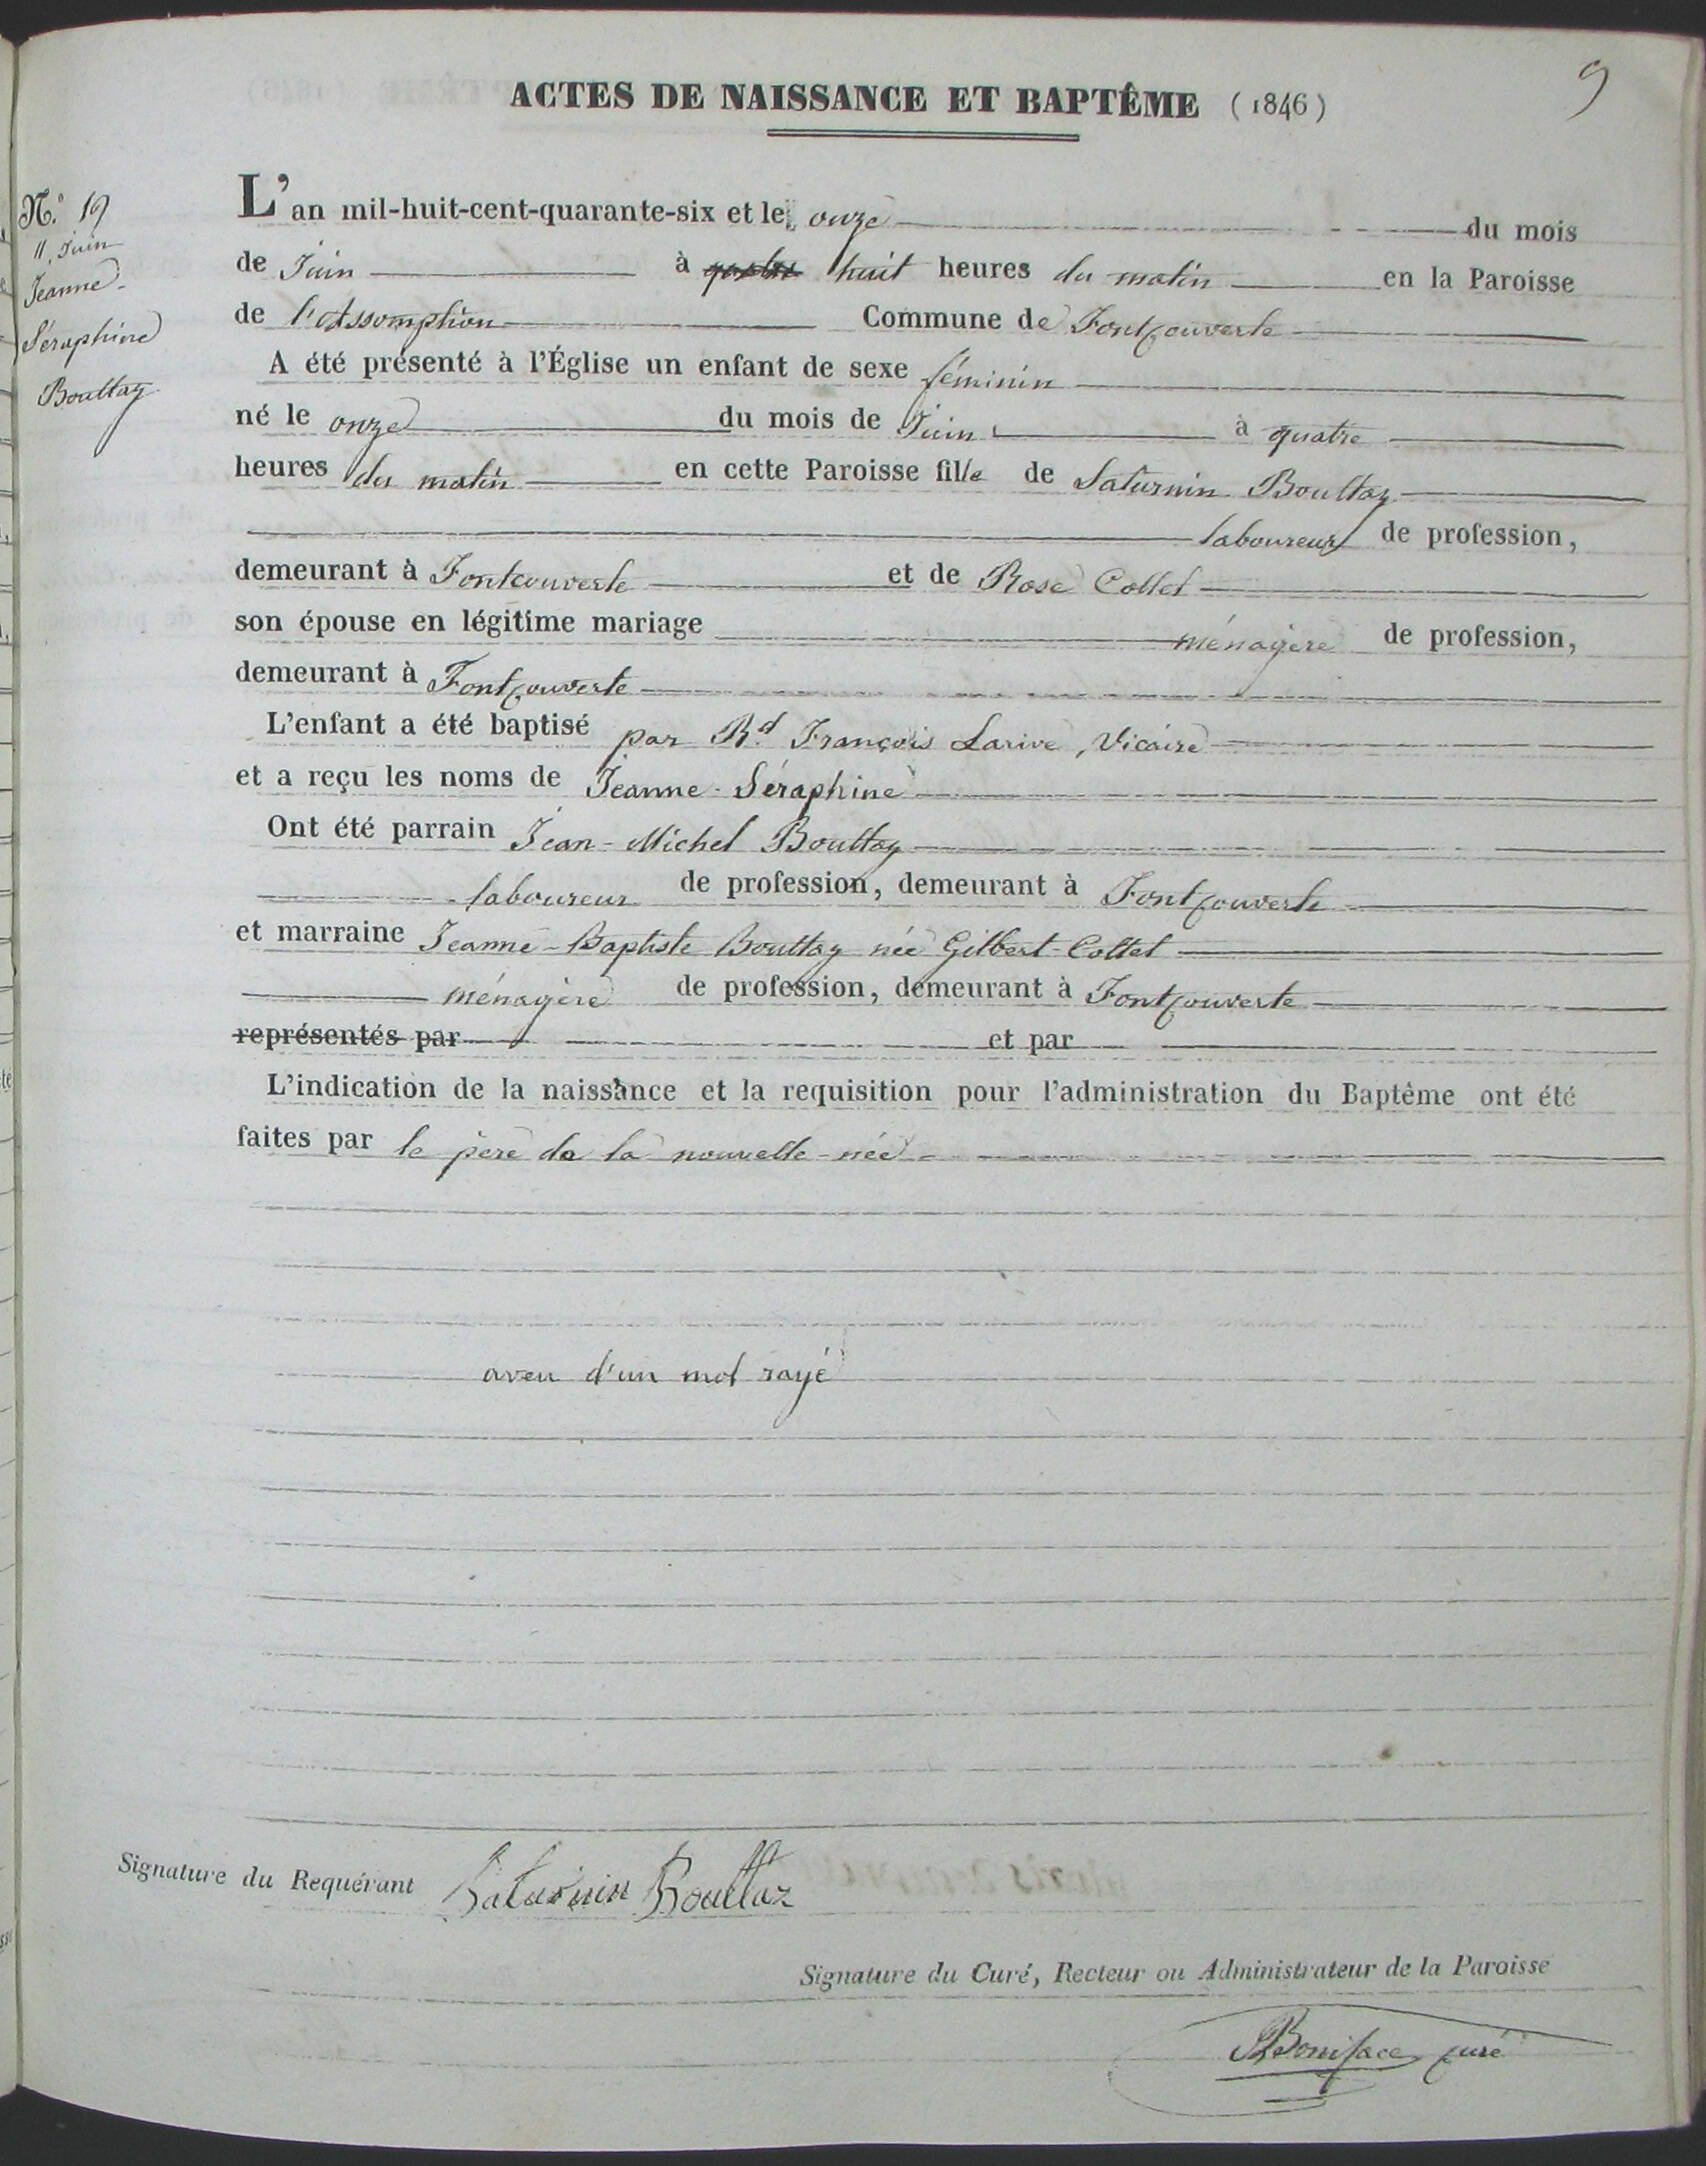 ACTES DE NAISSANCE ET BAPTÊME (1846)
9
N.° 19
11. Juin
Jeanne-
Séraphine
Bouttaz
L'an mil-huit-cent-quarante-six et le onze du mois
de Juin à quatre huit heures du matin en la Paroisse
de l'Assomption Commune de Fontcouverte
A été présenté à l'Église un enfant de sexe féminin
né le onze du mois de Juin à quatre
heures du matin en cette Paroisse fille de Saturnin Bouttaz
laboureur de profession,
demeurant à Fontcouverte et de Rose Collet
son épouse en légitime mariage ménagère de profession,
demeurant à Fontcouverte
L'enfant a été baptisé par Rd François Larive, Vicaire
et a reçu les noms de Jeanne-Séraphine
Ont été parrain Jean-Michel Bouttaz
laboureur de profession, demeurant à Fontcouverte
et marraine Jeanne-Baptiste Bouttaz née Gilbert-Collet
ménagère de profession, demeurant à Fontcouverte
représentés par et par
L'indication de la naissance et la requisition pour l'administration du Baptême ont été
faites par le père de la nouvelle-née
aveu d'un mot rayé
Signature du Requérant Saturnin Bouttaz
Signature du Curé, Recteur ou Administrateur de la Paroisse
Boniface curé